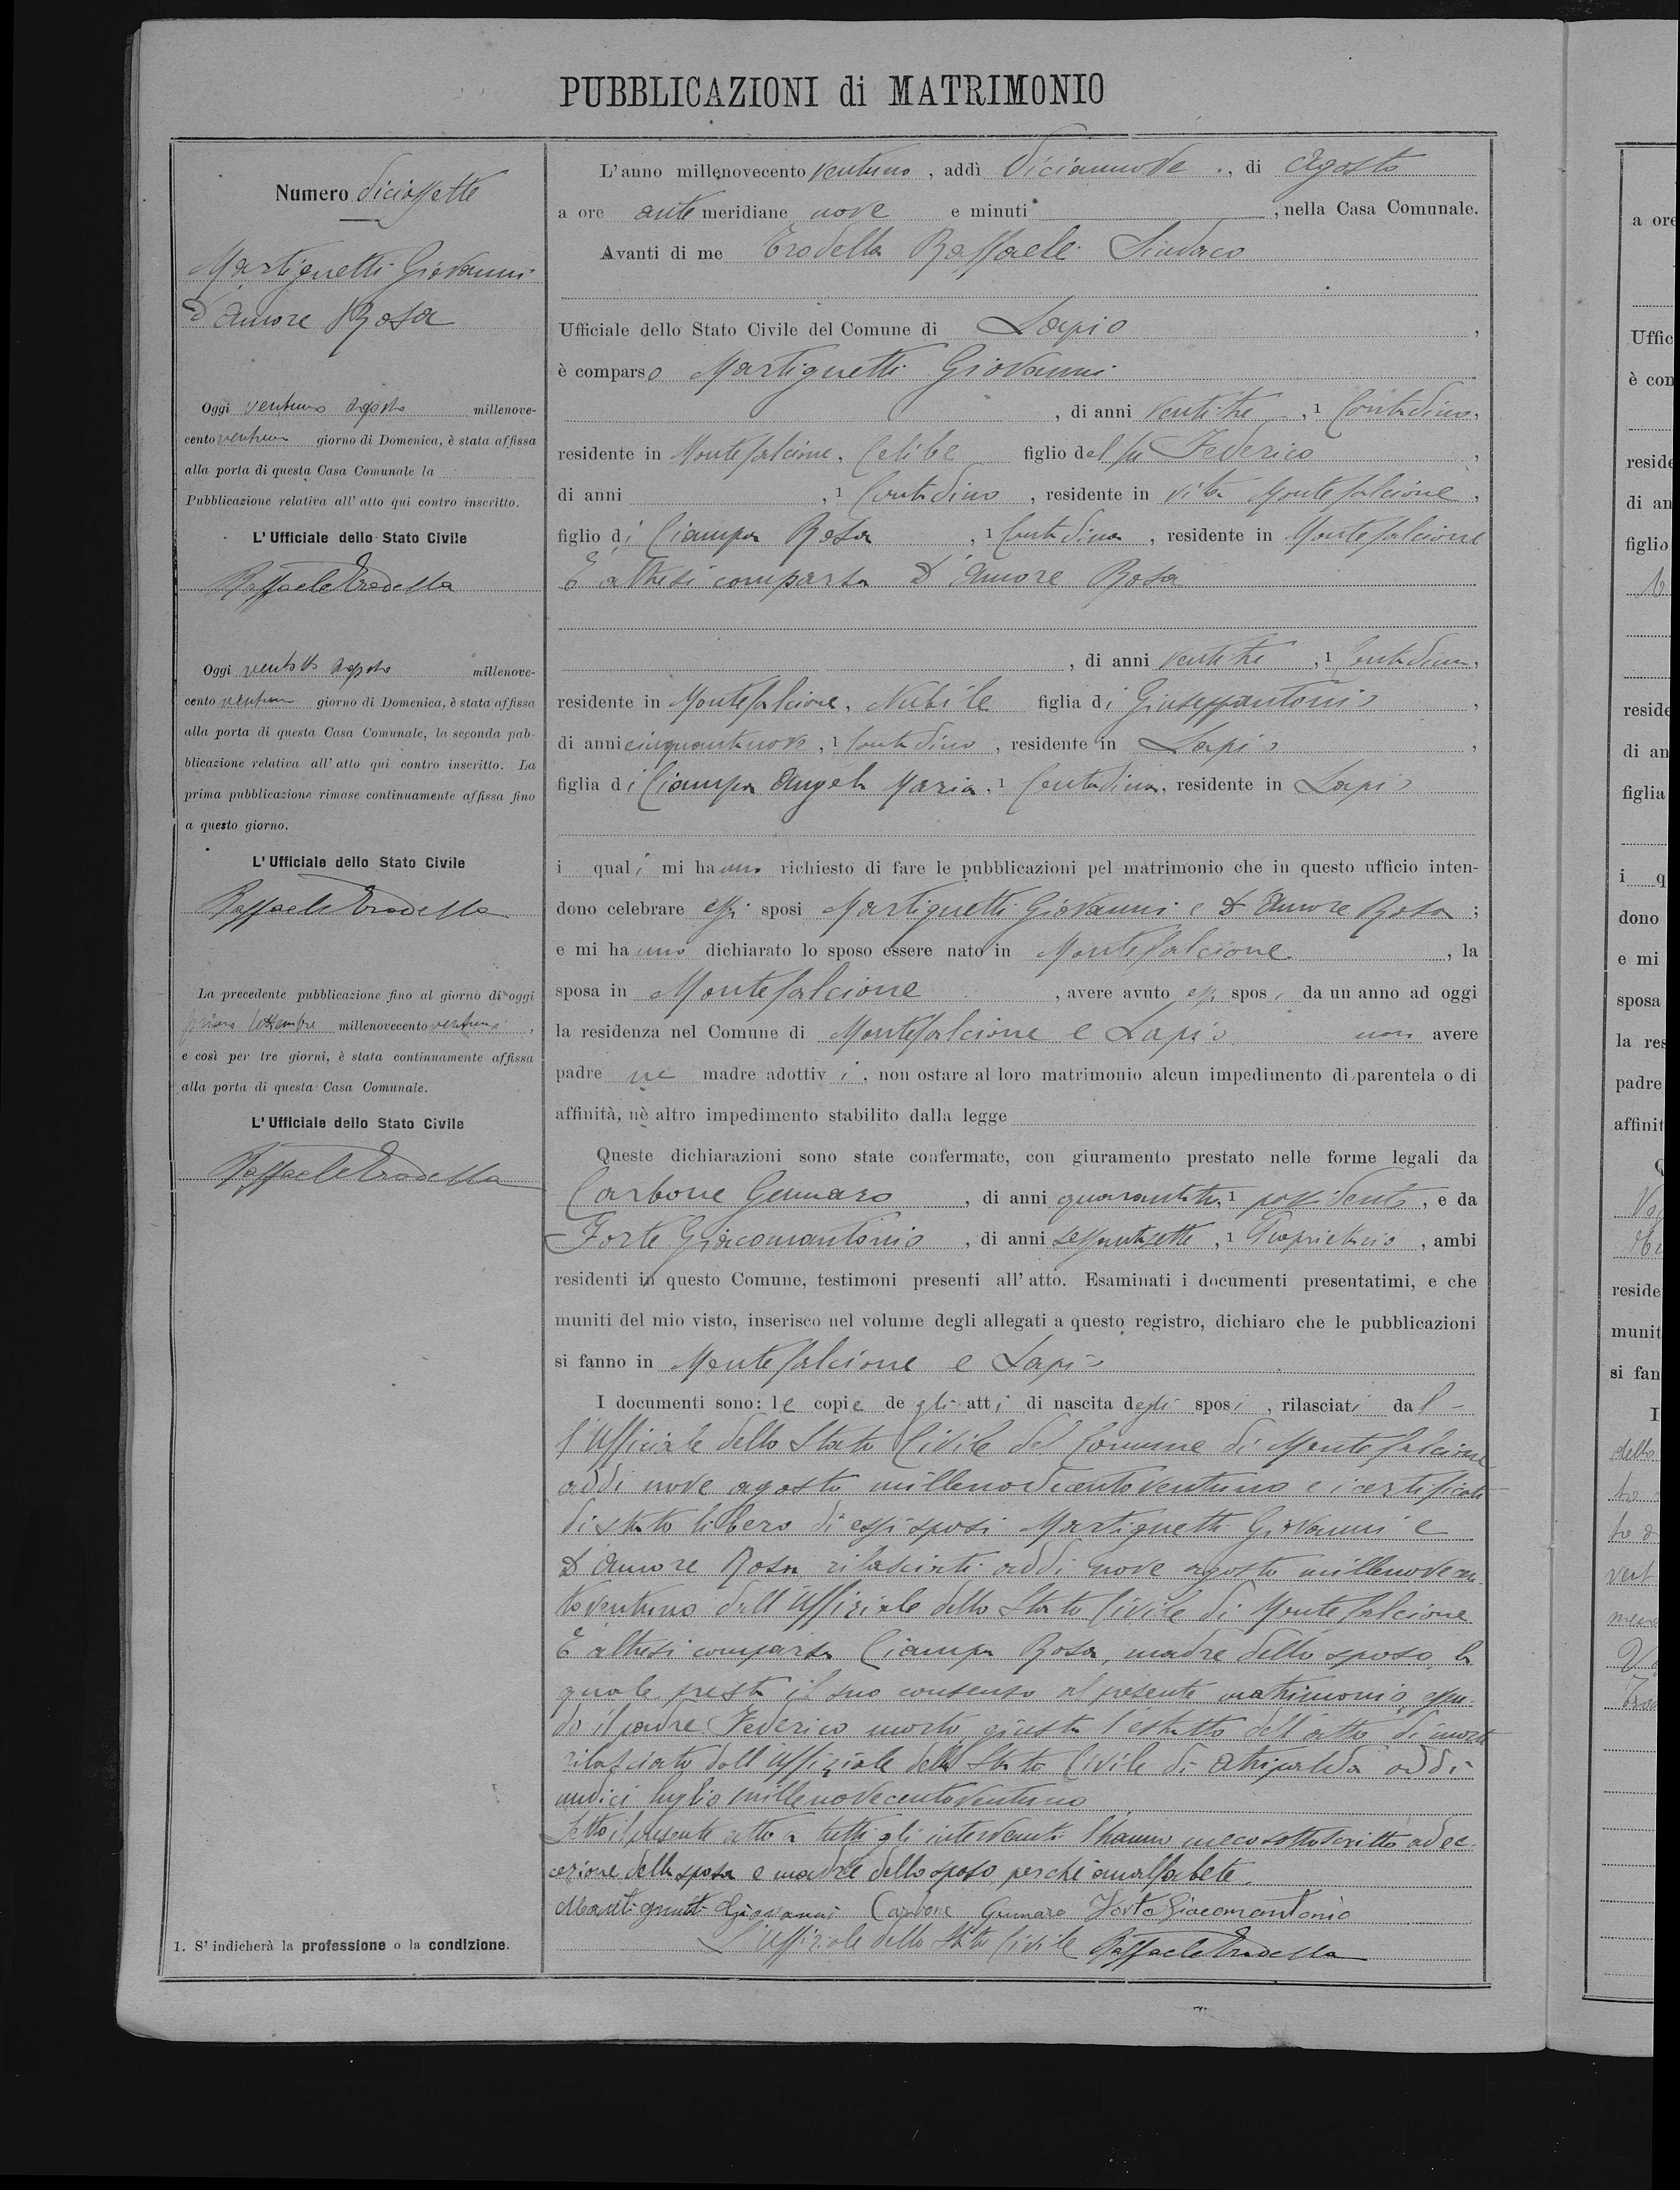 PUBBLICAZIONI di MATRIMONIO
Numero diciassette
Martignetti Giovanni
D'Amore Rosa
Oggi ventuno Agosto millenove-
cento ventuno giorno di Domenica, è stata affissa
alla porta di questa Casa Comunale la
Pubblicazione relativa all' atto qui contro inscritto.
L' Ufficiale dello Stato Civile
Raffaele Trodella
Oggi ventotto Agosto millenove-
cento ventuno giorno di Domenica, è stata affissa
alla porta di questa Casa Comunale, la seconda pub-
blicazione relativa all' atto qui contro inscritto. La
prima pubblicazione rimase continuamente affissa fino
a questo giorno.
L' Ufficiale dello Stato Civile
Raffaele Trodella
La precedente pubblicazione fino al giorno di oggi
primo Settembre millenovecento ventuno,
e così per tre giorni, è stata continuamente affissa
alla porta di questa Casa Comunale.
L' Ufficiale dello Stato Civile
Raffaele Trodella
1. S' indicherà la professione o la condizione.
L'anno millenovecento ventuno, addì Diciannove, di Agosto
a ore antemeridiane nove e minuti , nella Casa Comunale.
Avanti di me Trodella Raffaele Sindaco
Ufficiale dello Stato Civile del Comune di Lapio,
è comparso Martignetti Giovanni
, di anni ventitre, 1 Contadino,
residente in Montefalcione, Celibe figlio del fu Federico,
di anni , 1 Contadino, residente in vita Montefalcione,
figlio di Ciampa Rosa, 1 Contadina, residente in Montefalcione
E' altresi comparsa D'Amore Rosa
, di anni ventitre, 1 Contadina,
residente in Montefalcione, Nubile figlia di Giuseppantonio,
di anni cinquantanove, 1 Contadino, residente in Lapio,
figlia di Ciampa Angela Maria, 1 Contadina, residente in Lapio
i quali mi hanno richiesto di fare le pubblicazioni pel matrimonio che in questo ufficio inten-
dono celebrare essi sposi Martignetti Giovanni e D'Amore Rosa;
e mi hanno dichiarato lo sposo essere nato in Montefalcione, la
sposa in Montefalcione, avere avuto essi sposi da un anno ad oggi
la residenza nel Comune di Montefalcione e Lapio non avere
padre nè madre adottivi, non ostare al loro matrimonio alcun impedimento di parentela o di
affinità, nè altro impedimento stabilito dalla legge
Queste dichiarazioni sono state confermate, con giuramento prestato nelle forme legali da
Carbone Gennaro, di anni quarantatre, 1 possidente, e da
Forte Giacomantonio, di anni sessantasette, 1 Proprietario, ambi
residenti in questo Comune, testimoni presenti all' atto. Esaminati i documenti presentatimi, e che
muniti del mio visto, inserisco nel volume degli allegati a questo registro, dichiaro che le pubblicazioni
si fanno in Montefalcione e Lapio
I documenti sono: le copie degli atti di nascita degli sposi, rilasciati dal-
l'Uffiziale dello Stato Civile del Comune di Montefalcione
addi nove agosto millenovecentoventuno e i certificati
di stato libero di essi sposi Martignetti Giovanni e
D'Amore Rosa, rilasciati addi nove agosto millenovecen-
toventuno dall'Uffiziale dello Stato Civile di Montefalcione
E' altresi comparsa Ciampa Rosa, madre dello sposo, la
quale presta il suo consenso al presente matrimonio, essen-
do il padre Federico morto, giusta l'estratto dell'atto di morte
rilasciato dall'Uffiziale dello Stato Civile di Atripalda addi
undici luglio millenovecentoventuno
Letto il presente atto a tutti gli intervenuti l'hanno meco sottoscritto ad ec-
cezione della sposa e madre dello sposo, perchè analfabete.
Martignetti Giovanni Carbone Gennaro Forte Giacomantonio
L'Uffiziale dello Stato Civile Raffaele Trodella